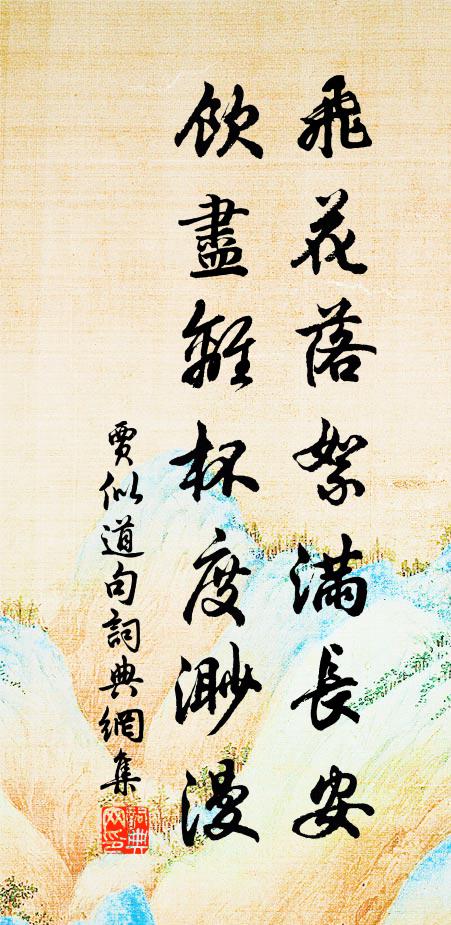 飛花落絮滿長安
飲盡離杯度渺漫
賈似道句詞典網集